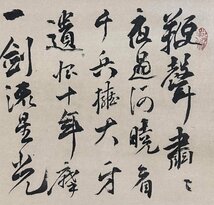 鞭聲肅〻
夜過河曉看
千兵擁大牙
遺恨十年磨
一劍流星光